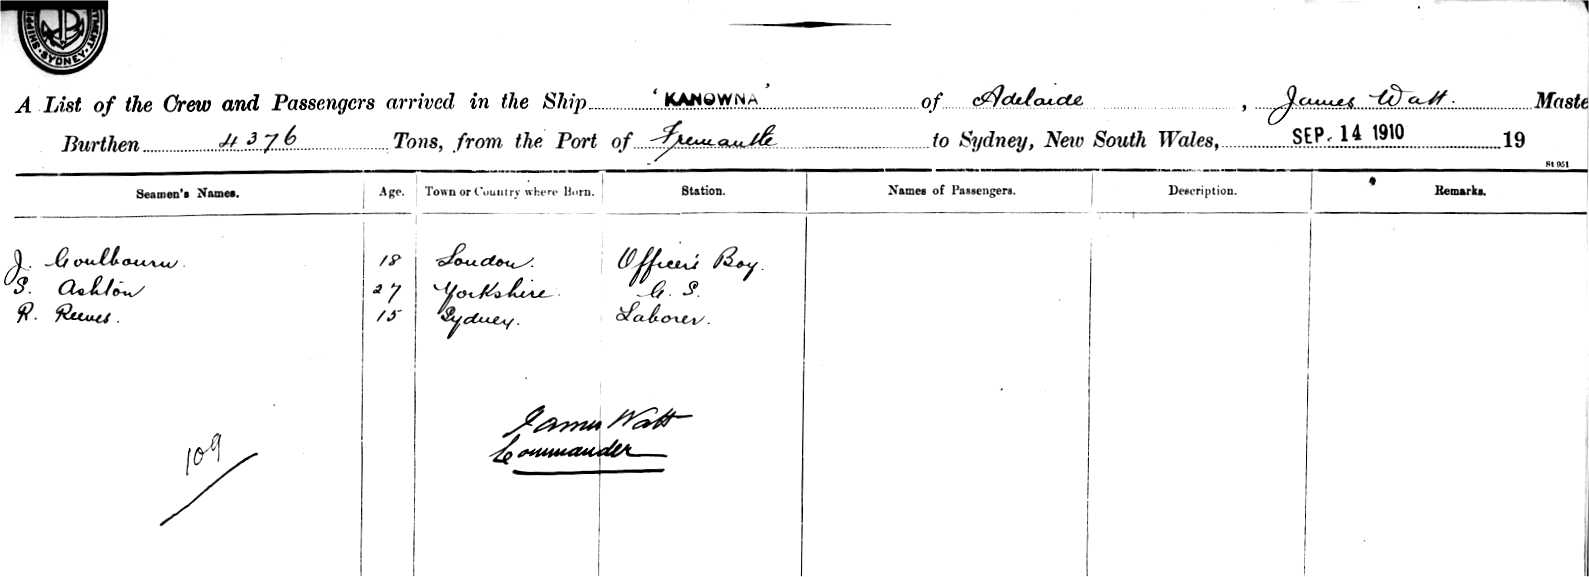 SHIPPING
SYDNEY
A List of the Crew and Passengers arrived in the Ship 'KANOWNA' of Adelaide, James Watt. Maste
Burthen 4376 Tons, from the Port of Fremantle to Sydney, New South Wales, SEP. 14 1910 19
St 951
Seamen's Names. Age. Town or Country where Born. Station. Names of Passengers. Description. Remarks.
J. Goulbourn. 18 London. Officers' Boy.
S. Ashton 27 Yorkshire. G. S.
R. Reeves. 15 Sydney. Laborer.
James Watt
Commander
109